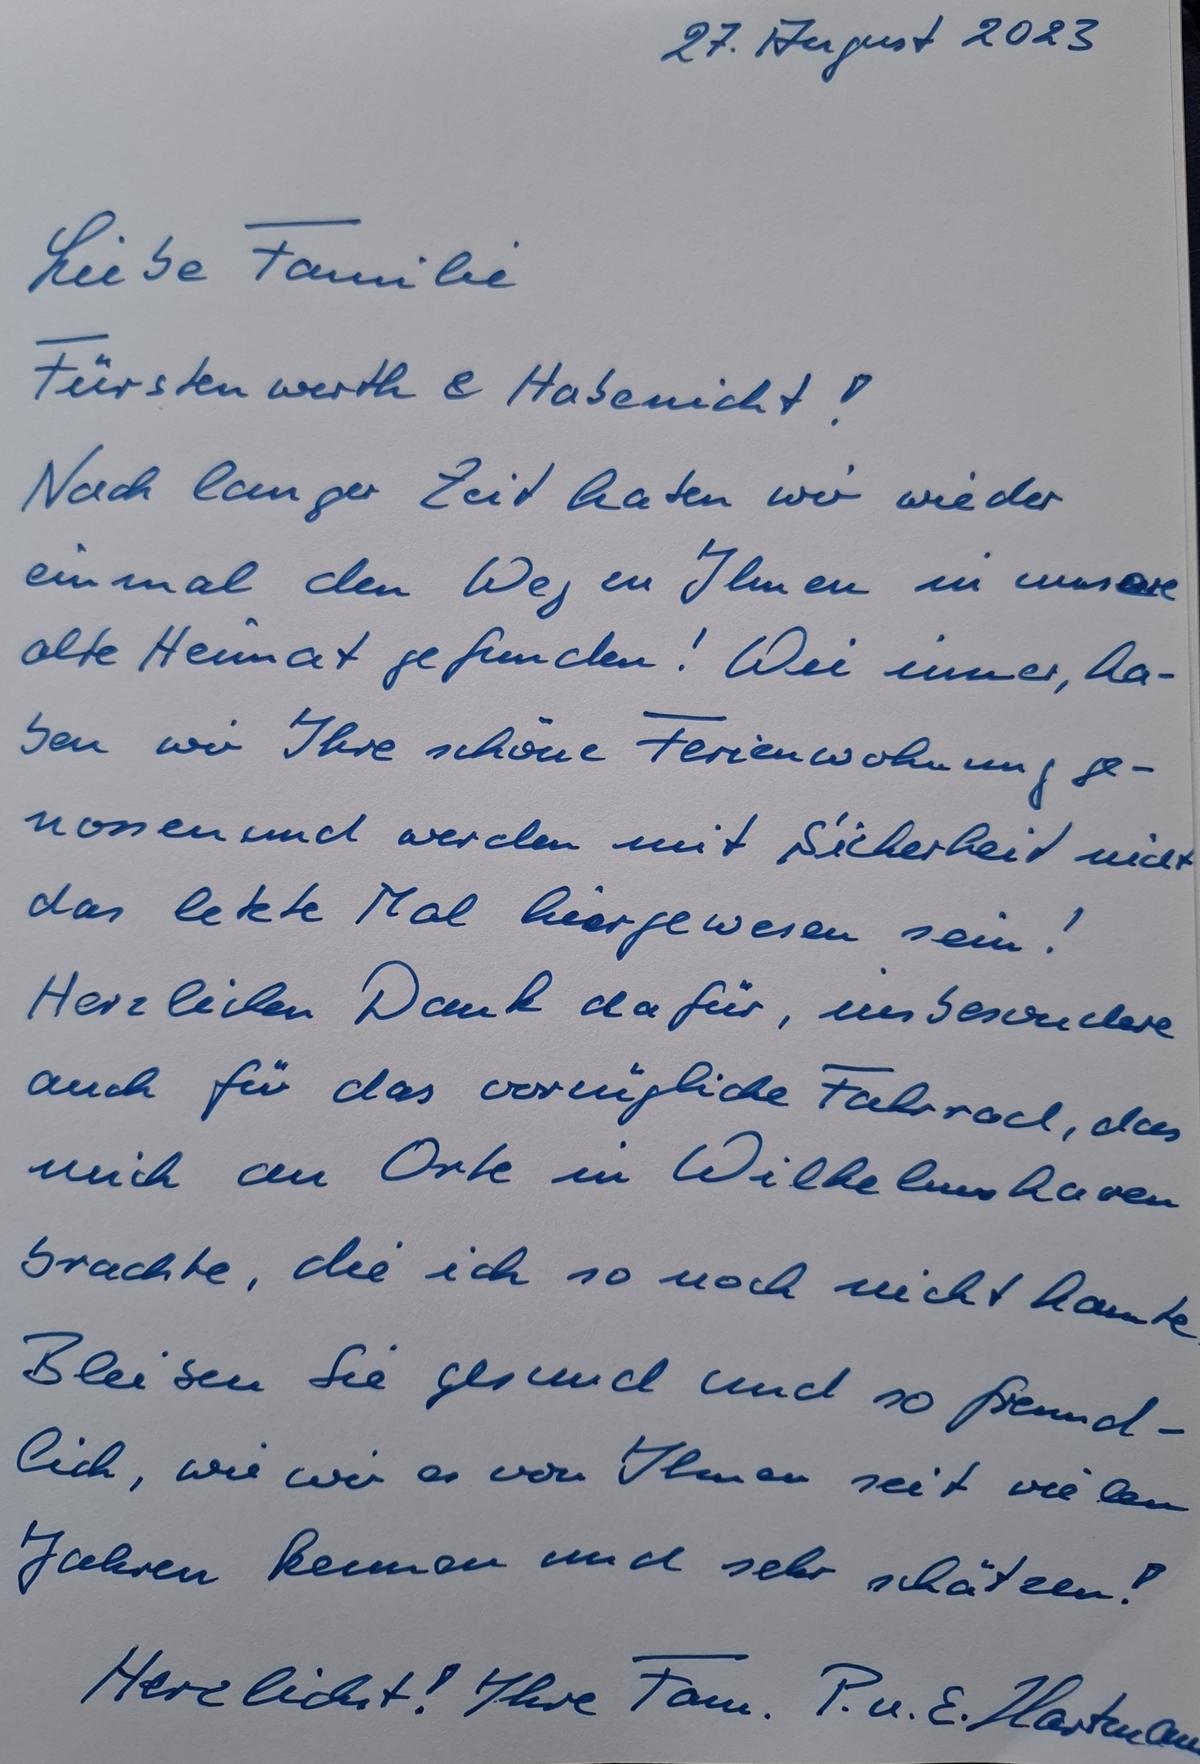 27. August 2023
Liebe Familie
Fürstenwerth & Habenicht!
Nach langer Zeit haben wir wieder
einmal den Weg zu Ihnen in unsere
alte Heimat gefunden! Wie immer, ha-
ben wir Ihre schöne Ferienwohnung ge-
nossen und werden mit Sicherheit nicht
das letzte Mal hiergewesen sein!
Herzlichen Dank dafür, insbesondere
auch für das vorzügliche Fahrrad, das
mich an Orte in Wilhelmshaven
brachte, die ich so noch nicht kannte.
Bleiben Sie gesund und so freund-
lich, wie wir es von Ihnen seit vielen
Jahren kennen und sehr schätzen!
Herzlichst! Ihre Fam. P. u. E. Hartmann